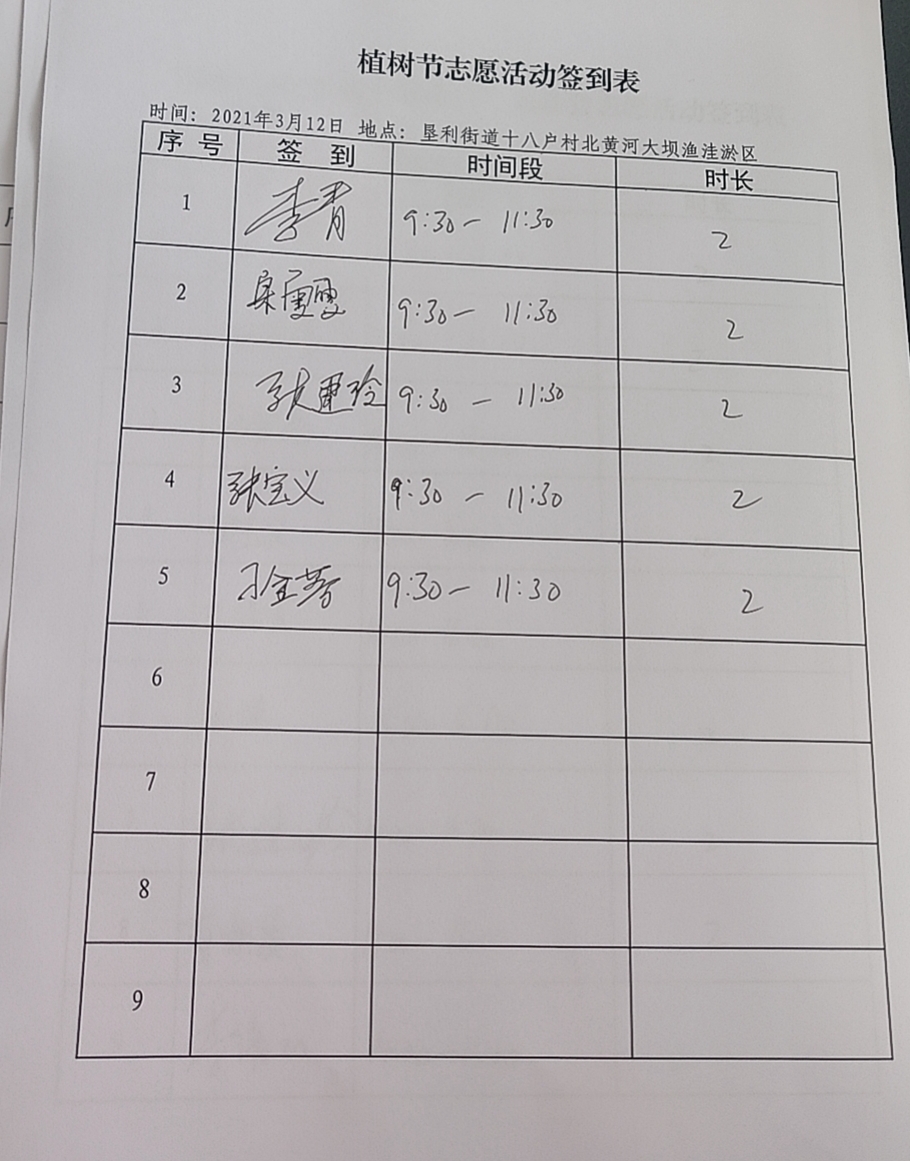 植树节志愿活动签到表
时间：2021年3月12日 地点：垦利街道十八户村北黄河大坝渔洼淤区
序 号 签 到 时间段 时长
1 李青 9:30— 11:30 2
2 9:30— 11:30 2
3 9:30 — 11:30 2
4 张宝义 9:30 — 11:30 2
5 孙金芳 9:30— 11:30 2
6
7
8
9